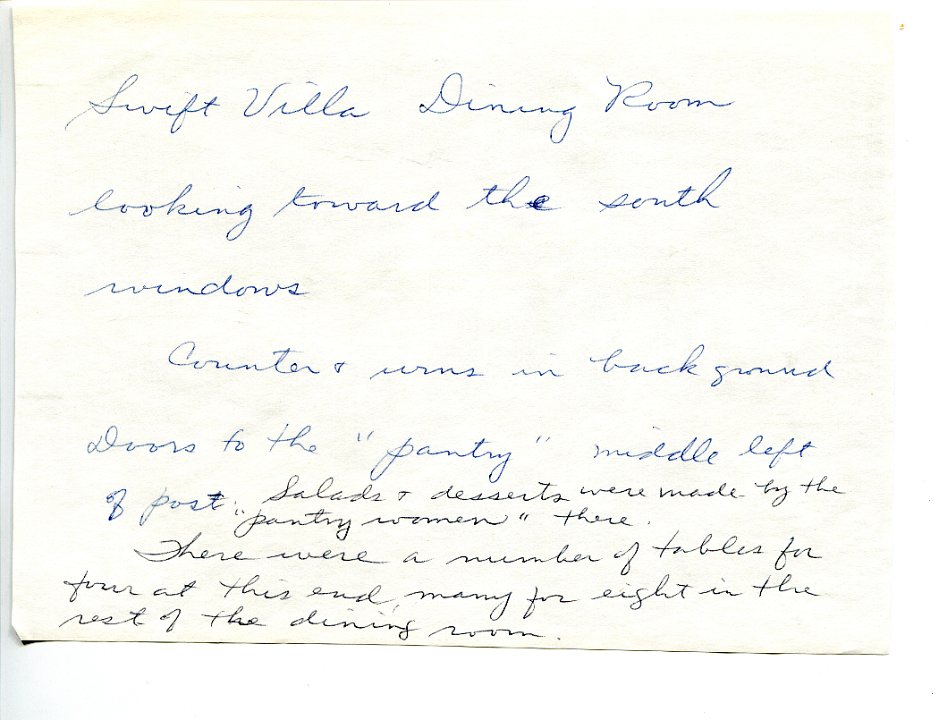 Swift Villa Dining Room
looking toward the south
windows
Counter & urns in background
Doors to the "pantry" middle left
of post. Salads & desserts were made by the
"pantry women" there.
There were a number of tables for
four at this end, many for eight in the
rest of the dining room.